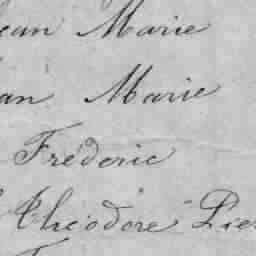 Jean Marie
Jean Marie
Fréderic
Théodore Pier